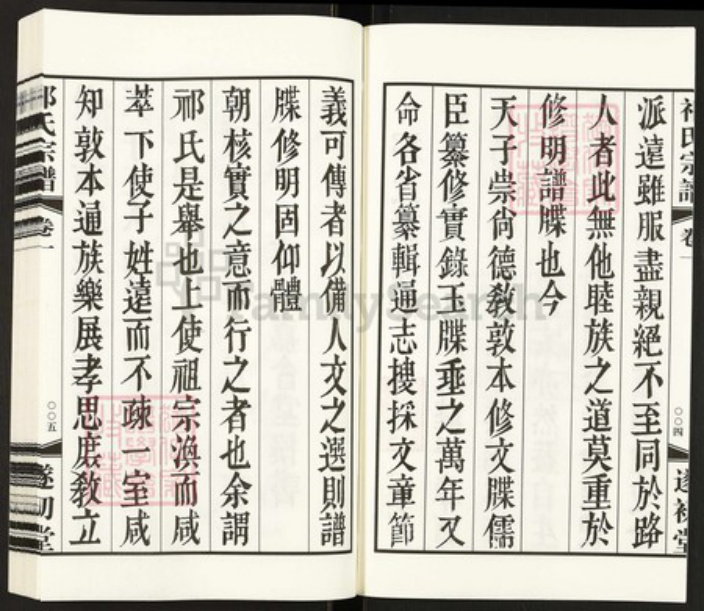 祁氏宗譜
卷一
〇〇四
遂初堂
派遠雖服盡親絕不至同於路
人者此無他睦族之道莫重於
修明譜牒也今
天子崇尙德敎敦本修文牒儒
臣纂修實錄玉牒垂之萬年又
命各省纂輯通志搜採文章節
義可傳者以備人文之選則譜
牒修明固仰體
朝核實之意而行之者也余謂
祁氏是舉也上使祖宗渙而咸
萃下使子姓遠而不疎一室咸
知敦本通族樂展孝思庶敎立
祁氏宗譜
卷一
〇〇五
遂初堂
FamilySearch